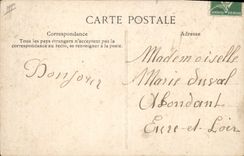 CARTE POSTALE
Correspondance
Adresse
Tous les pays étrangers n'acceptent pas la
correspondance au recto, se renseigner à la poste.
Mademoiselle
Bonjour
Marie Duval
Abondant
Eure-et-Loir